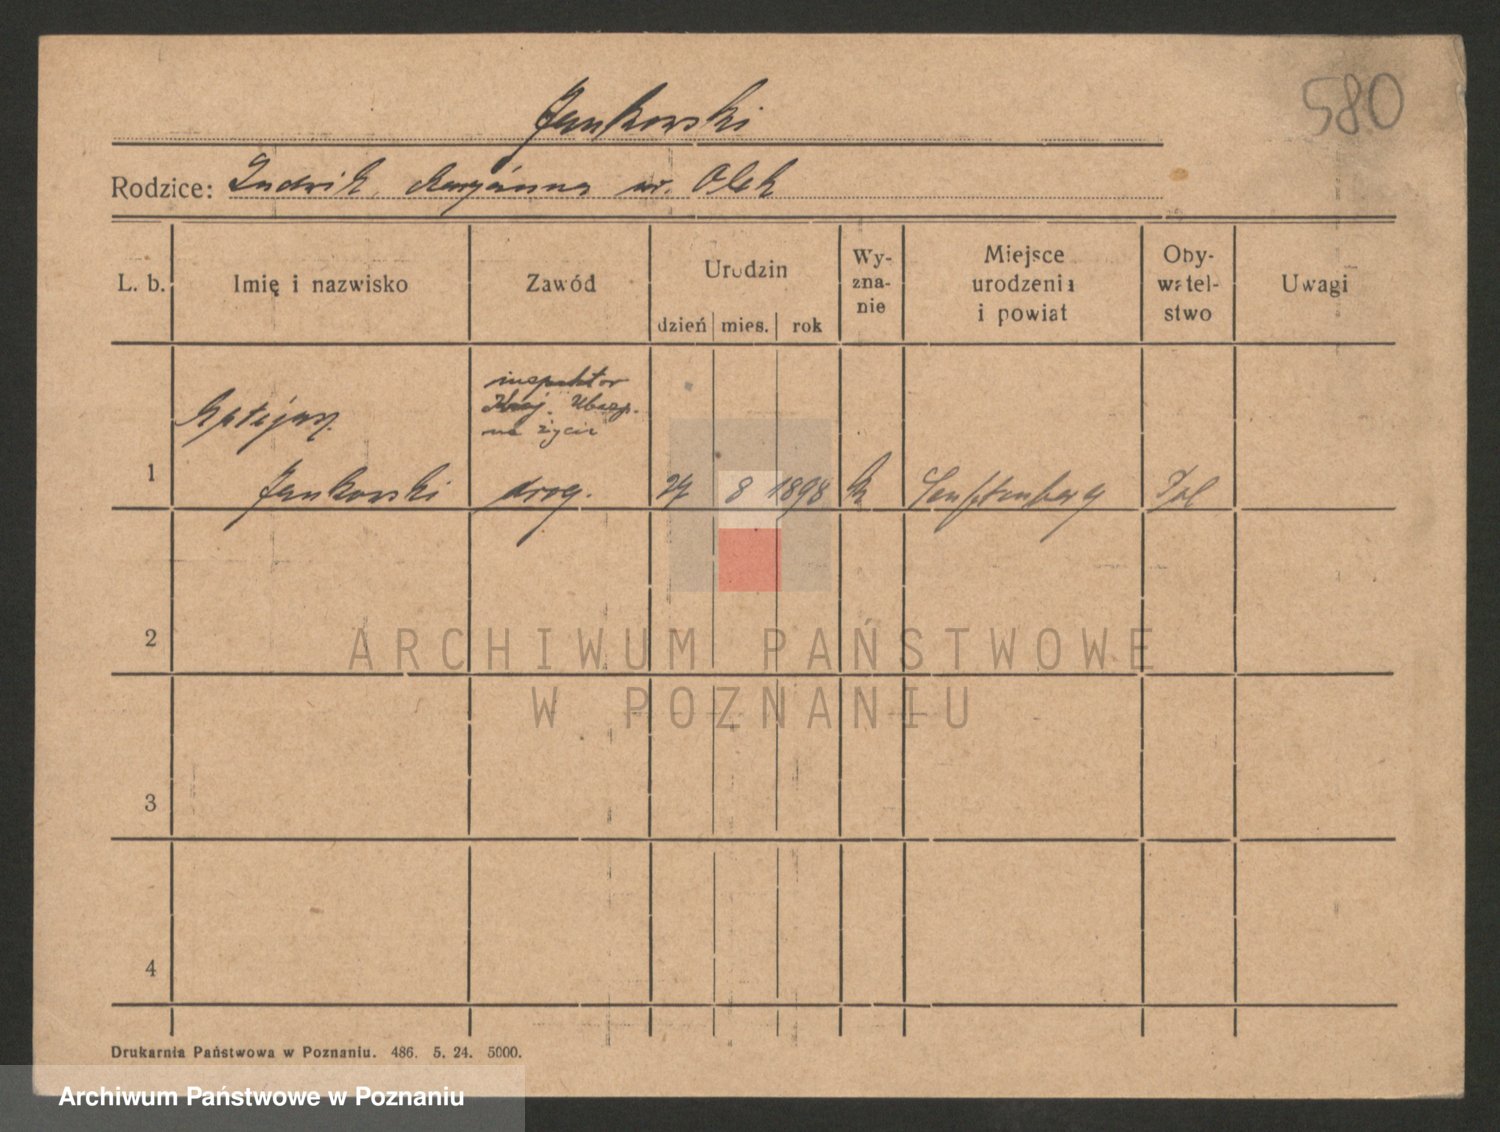 580
Jankowski
Rodzice: Ludwik, Maryanna ur. Olek
L. b. Imię i nazwisko Zawód Urodzin dzień mies. rok Wy-zna-nie Miejsce urodzenia i powiat Oby-watel-stwo Uwagi
inspektor
Kraj. Ubezp.
na życie
1 Jankowski drog. 27 8 1898 rk Senftenberg Pol
2
3
4
ARCHIWUM PAŃSTWOWE
W POZNANIU
Drukarnia Państwowa w Poznaniu. 486. 5. 24. 5000.
Archiwum Państwowe w Poznaniu